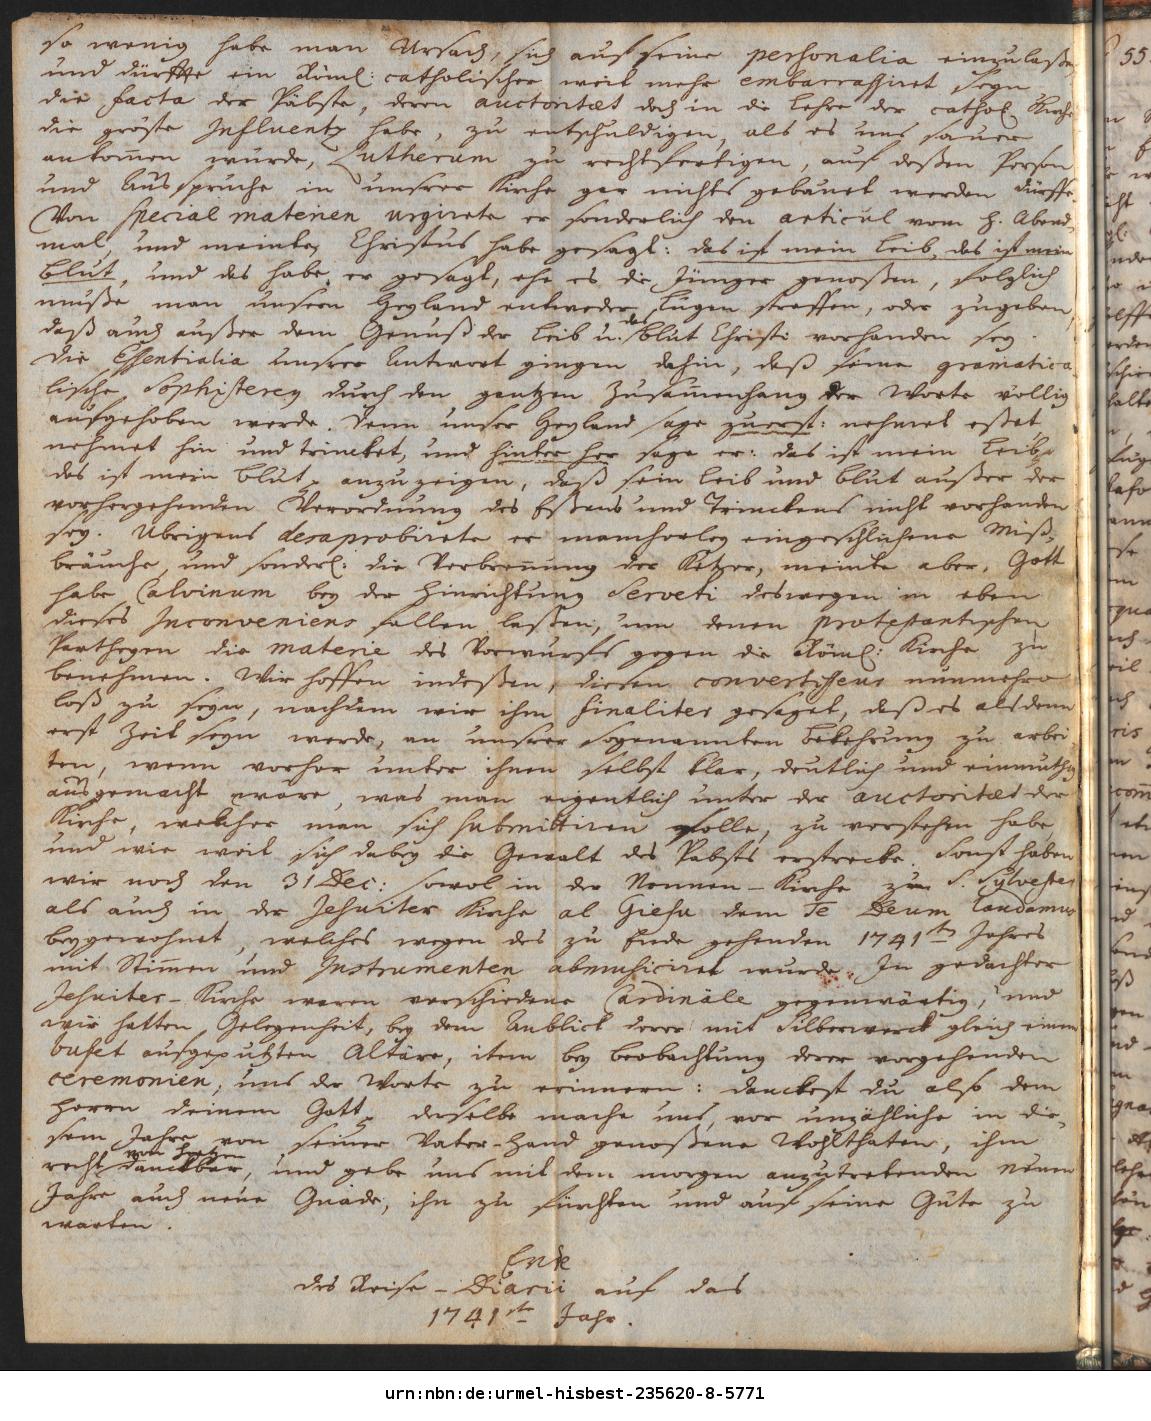 so wenig habe man Ursach, sich auf seine personalia einzulaßen,
und dürffte ein Röml: catholischer weit mehr embarrassiret seyn
die facta der Päbste, deren auctoritæt doch in die Lehre der cathol Kirche
die gröste Influentz habe, zu entschuldigen, als es uns sauer
ankommen würde, Lutherum zu rechtfertigen, auf deßen Person
und Aussprüche in unsrer Kirche gar nichts gebauet werden dürffe.
Von special materien urgirete er sonderlich den articul vom h. Abend-
mal, und meinte, Christus habe gesagt: das ist mein Leib, das ist mein
Blut, und das habe er gesagt, ehe es die Jünger genoßen, folglich
müße man unsern Heyland entweder Lügen straffen, oder zugeben,
daß auch außer dem Genuß der Leib u. das Blut Christi vorhanden sey.
Die Essentialia unsrer Antwort gingen dahin, daß seine gramatica-
lische Sophisterey durch den gantzen Zusammenhang der Worte völlig
aufgehoben werde. Denn unser Heyland sage zuerst: nehmet eßet
nehmet hin und trincket, und hinter her sage er: das ist mein Leib,
das ist mein Blut, anzuzeigen, daß sein Leib und Blut außer der
vorhergehenden Verordnung des Eßens und Trinckens nicht vorhanden
sey. Übrigens desaprobirete er mancherley eingeschlichene Miß-
bräuche, und sonderl: die Verbrennung der Ketzer, meinte aber, Gott
habe Calvinum bey der Hinrichtung Serveti deswegen in eben
dieses Inconveniens fallen laßen, um denen protestantischen
Partheyen die materie des Vorwurffs gegen die Röml: Kirche zu
benehmen. Wir hoffen indeßen, diesen convertisseur nunmehro
loß zu seyn, nachdem wir ihm finaliter gesaget, daß es alsdenn
erst Zeit seyn werde, an unsrer sogenannten Bekehrung zu arbei
ten, wenn vorher unter ihnen selbst klar, deutlich und einmüthig
ausgemacht wäre, was man eigentlich unter der auctoritæt der
Kirche, welcher man sich submittiren solle, zu verstehen habe,
und wie weit sich dabey die Gewalt des Pabsts erstrecke. Sonst haben
wir noch den 31 Dec: sowol in der Nonnen-Kirche zum S. Sylvester
als auch in der Jesuiter Kirche al Giesu dem Te Deum laudamus
beygewohnet, welches wegen des zu Ende gehenden 1741ten Jahres
mit Stimmen und Instrumenten abmusiciret wurde. In gedachter
Jesuiter-Kirche waren verschiedene Cardinäle gegenwärtig, und
wir hatten Gelegenheit, bey dem Anblick derer mit Silberwerck gleich einem
bufet ausgeputzten Altäre, item bey Beobachtung derer vorgehenden
ceremonien, uns der Worte zu erinnern: danckest du also dem
Herrn deinem Gott, derselbe mache uns, vor unzähliche in die-
sem Jahre von seiner Vater-Hand genoßene Wohlthaten, ihm
recht von Hertzen danckbar, und gebe uns mit dem morgen anzutretenden neuen
Jahre auch neue Gnade, ihn zu fürchten und auf seine Güte zu
warten.
Ende
des Reise-Diarii auf das
1741ste Jahr.
55
urn:nbn:de:urmel-hisbest-235620-8-5771